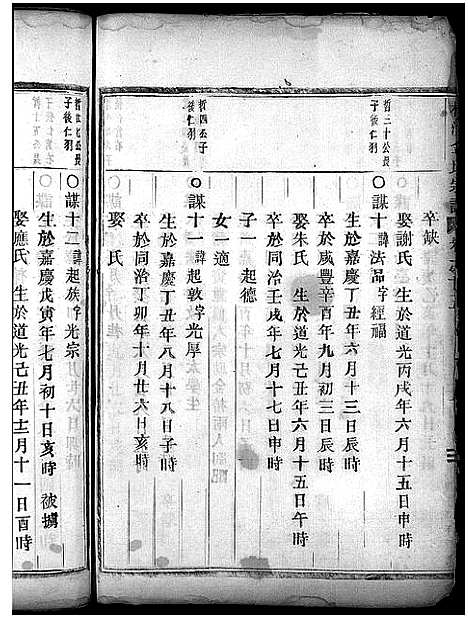 卒缺
娶謝氏 生於道光丙戌年六月十五日申時
哲三十公長
子後仁羽
○謀十 諱法品字經福
生於嘉慶丁丑年六月十三日辰時
卒於咸豐辛酉年九月初三日辰時
娶朱氏 生於道光己丑年六月十五日午時
卒於同治壬戌年七月十七日申時
子一 起德
女一適
哲四公子
後仁羽
○謀十一 諱起敦字光厚
生於嘉慶丁丑年八月十八日子時
卒於同治丁卯年十月廿六日亥時
娶 氏
公長
子後仁羽
○謀十二 諱起族字光宗
生於嘉慶戊寅年七月初十日亥時 被擄
娶應氏 生於道光己丑年十二月十一日酉時